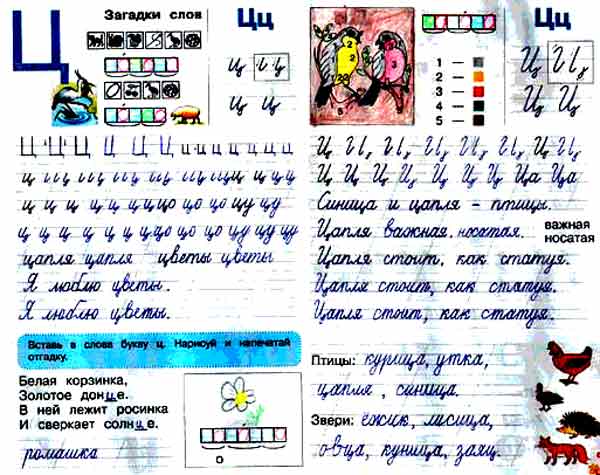 Ц
Загадки слов
Цц
ц ц
ц ц
Ц Ц Ц Ц Ц Ц Ц ц ц ц ц ц ц
ц ц ц ц ц ц ц ц ц ц ц ц ц
ц ц ц ц ц ц цо цо цо цу цу
ц ц ц ц ц ц цо цо цо цу цу цу
цапля цапля цветы цветы
Я люблю цветы.
Я люблю цветы.
Вставь в слова букву ц. Нарисуй и напечатай
отгадку.
Белая корзинка,
Золотое донце.
В ней лежит росинка
И сверкает солнце.
ромашка
о
Цц
1 —
2 —
3 —
4 —
5 —
Ц Ц
Ц Ц
Ц Ц Ц Ц Ц Ц Ц Ц Ц
Ц Ц Ц Ц Ц Ц Ц Ца Ца
Синица и цапля – птицы.
Цапля важная, носатая.
важная
носатая
Цапля стоит, как статуя.
Цапля стоит, как статуя.
Цапля стоит, как статуя.
Птицы: курица, утка,
цапля, синица.
Звери: ёжик, лисица,
овца, куница, заяц.